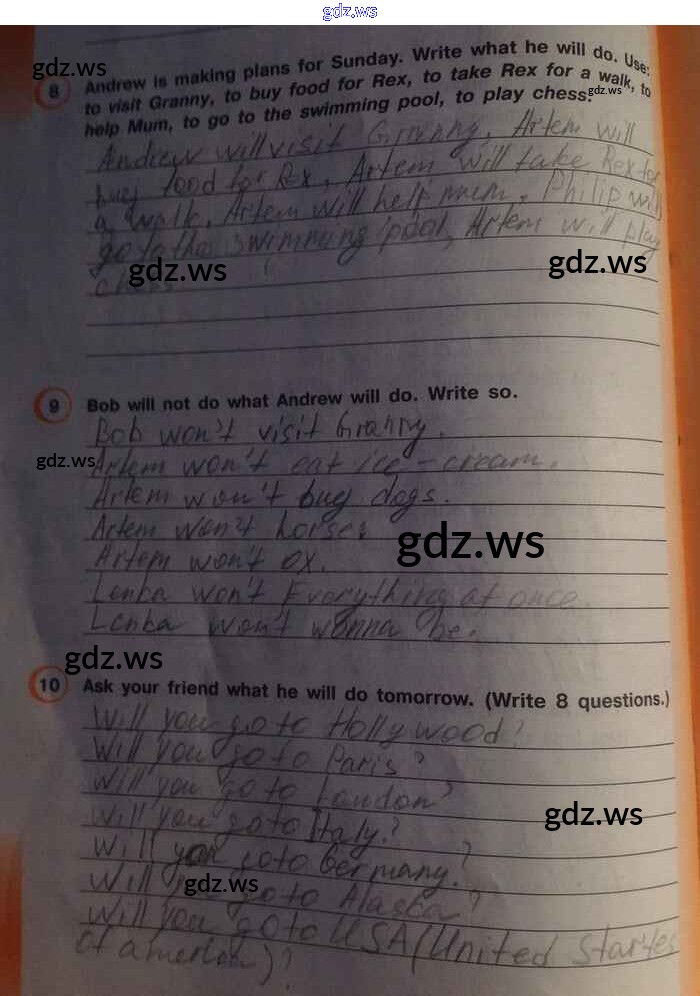 gdz.ws
gdz.ws
8 Andrew is making plans for Sunday. Write what he will do. Use:
to visit Granny, to buy food for Rex, to take Rex for a walk, to
gdz.ws
help Mum, to go to the swimming pool, to play chess.
Andrew will visit Granny. Artem will
buy food for Rex, Artem will take Rex for
a walk. Artem will help mum. Philip will
go to the swimming pool, Artem will play
chess
gdz.ws
gdz.ws
9 Bob will not do what Andrew will do. Write so.
Bob won't visit Granny.
gdz.ws
Artem won't eat ice-cream.
Artem won't buy dogs.
Artem won't horses
gdz.ws
Artem won't ox.
Lenka won't Everything at once.
Lenka won't wanna be.
gdz.ws
10 Ask your friend what he will do tomorrow. (Write 8 questions.)
Will you go to Hollywood?
Will you go to Paris?
Will you go to London?
gdz.ws
Will you go to Italy?
Will you go to Germany?
gdz.ws
Will you go to Alaska?
Will you go to USA (United Startes
of america)?